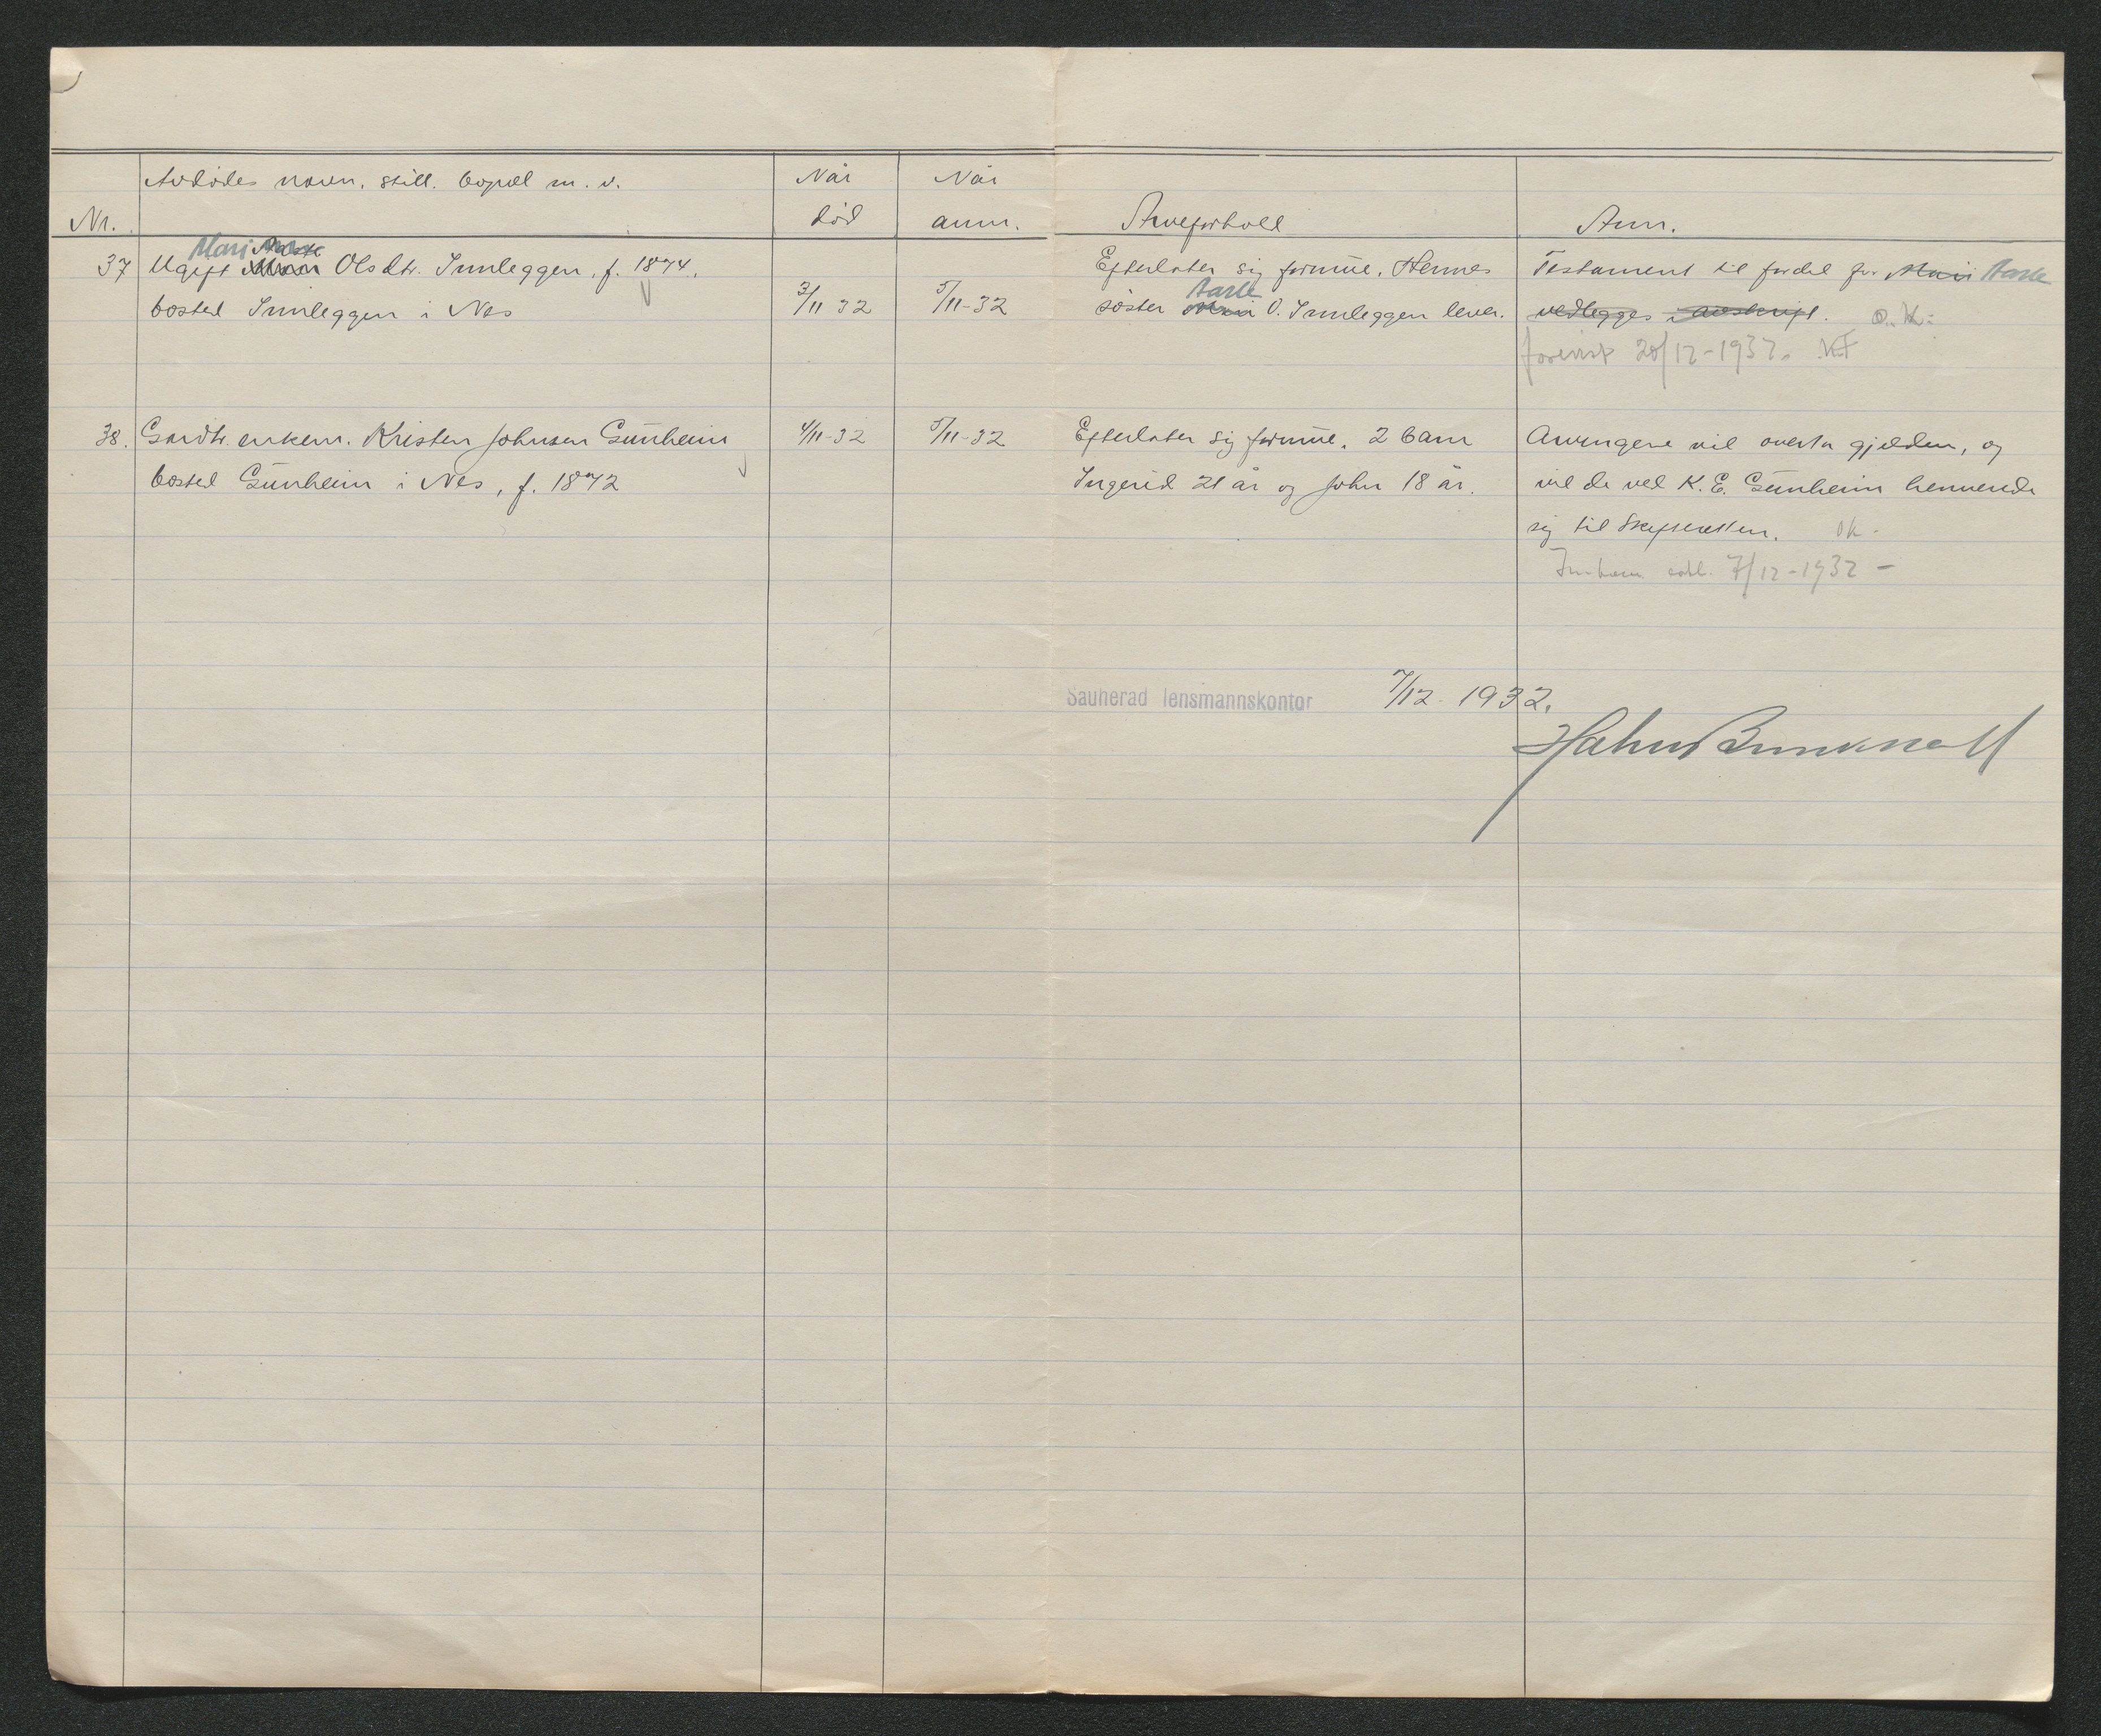 Avdödes navn, still. bopæl m. v.
Når
død
Når
anm.
Nr.
Arveforhold
Anm.
Mari
37 Ugift Olsdtr. Innleggen, f. 1874,
bosted Innleggen i Nes
3/11 32
5/11-32
Efterlater sig formue. Hennes
Aasle
søster Mari O. Innleggen lever.
Testament til fordel for Mari Aasle
vedlegges i avskrift. O.K.
forevist 20/12-1932. KF
38. Gardbr. enkem. Kristen Johnsen Gunheim
bosted Gunheim i Nes, f. 1872
4/11-32
5/11-32
Efterlater sig formue. 2 barn
Ingerid 21 år og John 18 år.
Arvingene vil overta gjelden, og
vil de ved K. E. Gunheim henvende
sig til Skifteretten. ok.
7/12-1932 -
Sauherad lensmannskontor 7/12. 1932.